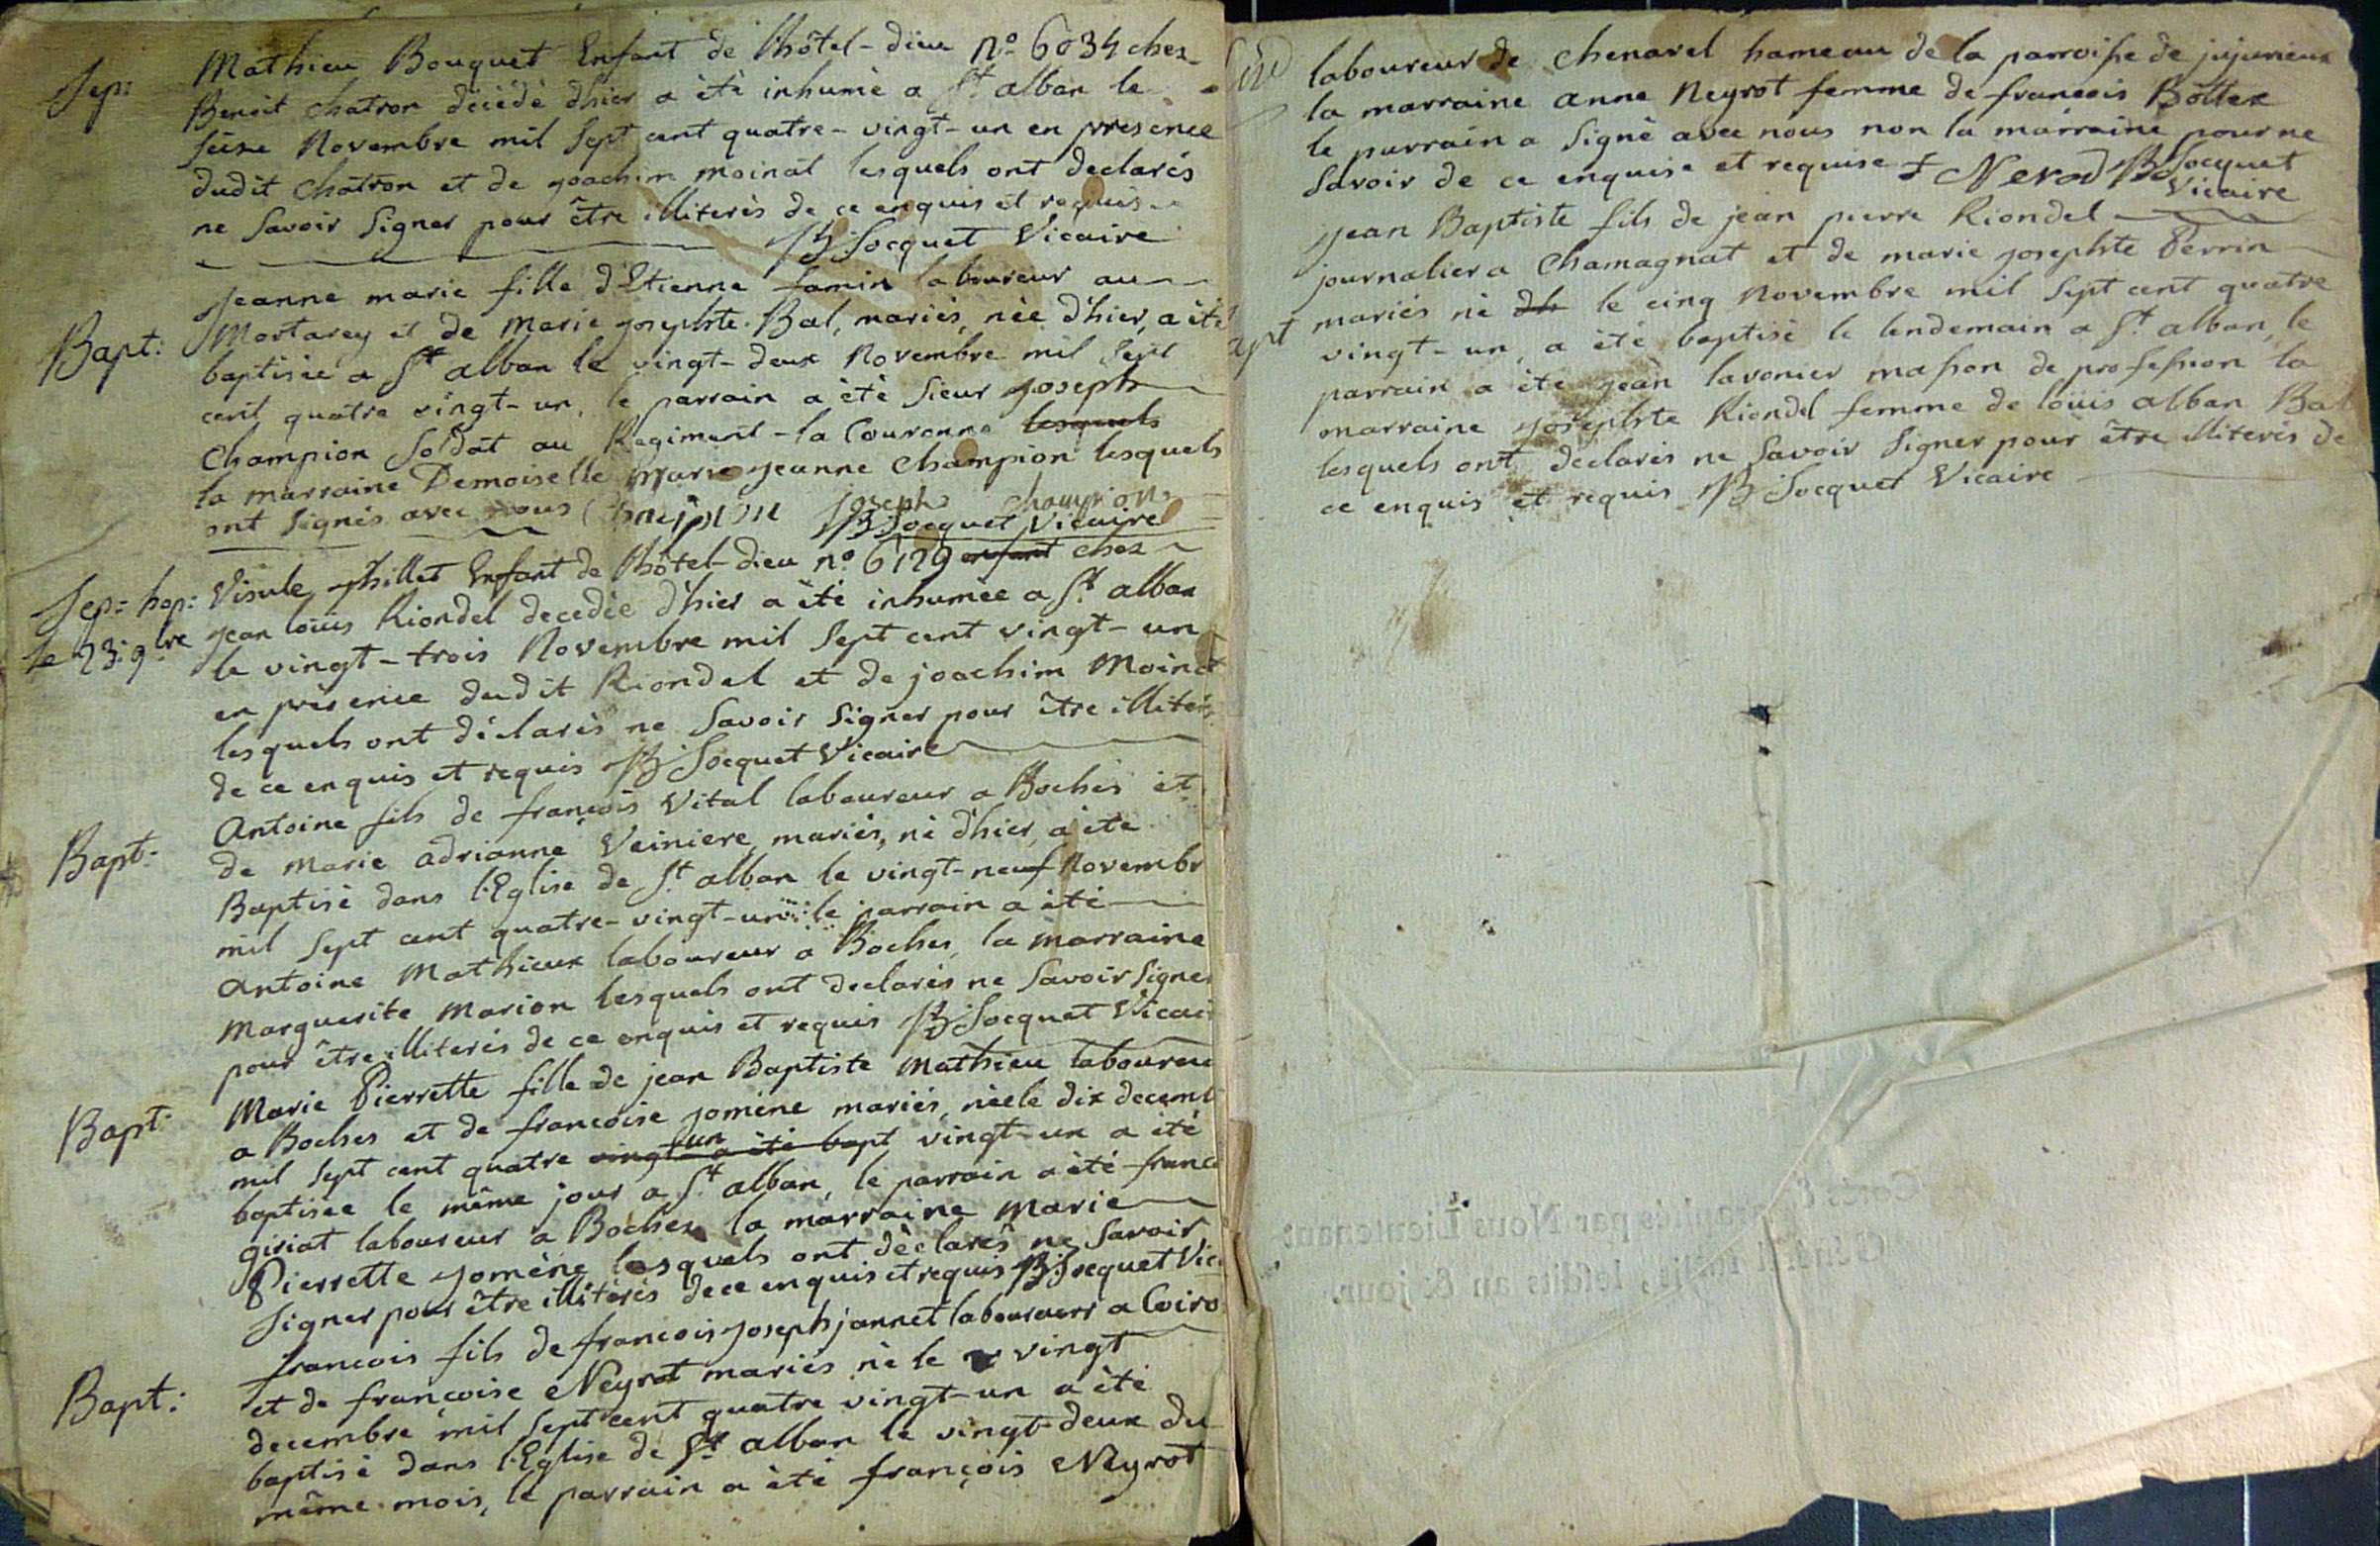 Sep:
Mathieu Bouquet Enfant de l'hôtel-dieu n.o 6034 chez
Benoit chatron décédé d'hier a èté inhumè a St alban le
seize Novembre mil Sept cent quatre-vingt-un en presence
dudit chatron et de joachim moinat lesquels ont declarés
ne Savoir Signer pour être illiterés de ce enquis et requis
JB Socquet Vicaire
Bapt:
Jeanne marie fille d'Etienne famin laboureur au
Mortarey et de Marie josephte Bal, mariés, née d'hier, a èté
baptisée a St alban le vingt-deux Novembre mil Sept
cent quatre vingt-un, le parrain a èté Sieur joseph
Champion Soldat au Regiment-la Couronne lesquels
la marraine Demoiselle Marie jeanne Champion lesquels
ont Signés avec nous joseph champion
JB Socquet Vicaire
Sep: hop:
le 23: 9bre
Visule philet Enfant de l'hôtel-Dieu n.o 6129 enfant chez
jean loüis Riondel decedée d'hier a èté inhumée a St alban
le vingt-trois Novembre mil Sept cent vingt-un
en présence dudit Riondel et de joachim Moinat
lesquels ont déclarés ne Savoir Signer pour être illiterés
de ce enquis et requis JB Socquet Vicaire
Bapt:
Antoine fils de françois Vital laboureur a Boches et
de Marie adrianne Veiniere, mariés, né d'hier, a èté
Baptisé dans l'Eglise de St alban le vingt-neuf Novembr
mil Sept cent quatre-vingt-un le parrain a èté
Antoine Mathieux laboureur a Boches, la marraine
Marguerite Marion lesquels ont declarés ne Savoir Signer
pour être illiterés de ce enquis et requis JB Socquet Vicai
Bapt:
Marie Pierrette fille de jean Baptiste Mathieu laboureu
a Boches et de francoise jomène mariés, née le dix decemb
mil Sept cent quatre vingt-un a èté bapt vingt-un a èté
baptisée le même jour a St alban, le parrain a èté franc
giriat laboureur a Boches la marraine Marie
Pierrette jomène lesquels ont dèclarés ne Savoir
Signer pour être illiterés de ce enquis et requis JB Socquet Vic
Bapt:
francois fils de francois joseph jannet laboureur a Coiro
et de françoise Neyrot mariés né le vingt
decembre mil Sept cent quatre vingt-un a èté
baptisé dans l'Eglise de St alban le vingt-deux du
même mois, le parrain a èté françois Neyrot
laboureur de chenavel hameau de la parroisse de jujurieux
la marraine anne Neyrot femme de francois Bottex
le parrain a Signé avec nous non la marraine pour ne
Savoir de ce enquise et requise f Nerod JB Socquet
Vicaire
apt
jean Baptiste fils de jean pierre Riondel
journalier a Chamagnat et de marie josephte Perrin
mariés né dh le cinq Novembre mil Sept cent quatre
vingt-un, a èté baptisé le lendemain a St alban, le
parrain a èté jean lavonier masson de profession la
marraine josephte Riondel femme de loüis alban Bal
lesquels ont declarés ne Savoir Signer pour être illiterés de
ce enquis et requis JB Socquet Vicaire
paraphés par Nous Lieutenant
lesdits an & jour.